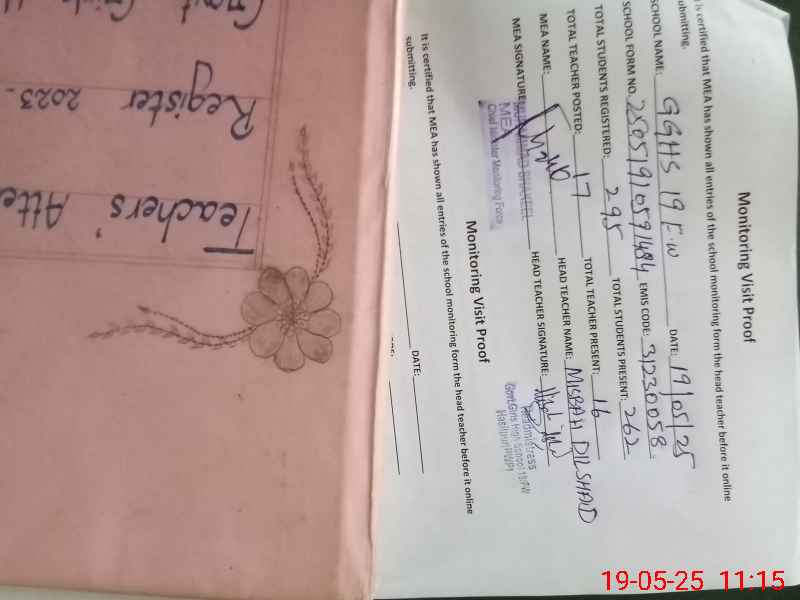 Teachers' Atte
Register 2023-
Monitoring Visit Proof
is certified that MEA has shown all entries of the school monitoring form the head teacher before it online
ubmitting.
SCHOOL NAME: GGHS 19 F.W DATE: 19/05/25
SCHOOL FORM NO. EMIS CODE: 31230058
TOTAL STUDENTS REGISTERED: 295 TOTAL STUDENTS PRESENT: 262
TOTAL TEACHER POSTED: 17 TOTAL TEACHER PRESENT: 16
MEA NAME: HEAD TEACHER NAME: MISBAH DILSHAD
MEA SIGNATURE: HEAD TEACHER SIGNATURE:
MEA
Chief Minister Monitoring Force
Headmistress
Govt.Girls High School 19/FW
Hasilpur(BWP)
Monitoring Visit Proof
It is certified that MEA has shown all entries of the school monitoring form the head teacher before it online
submitting.
DATE:
19-05-25 11:15